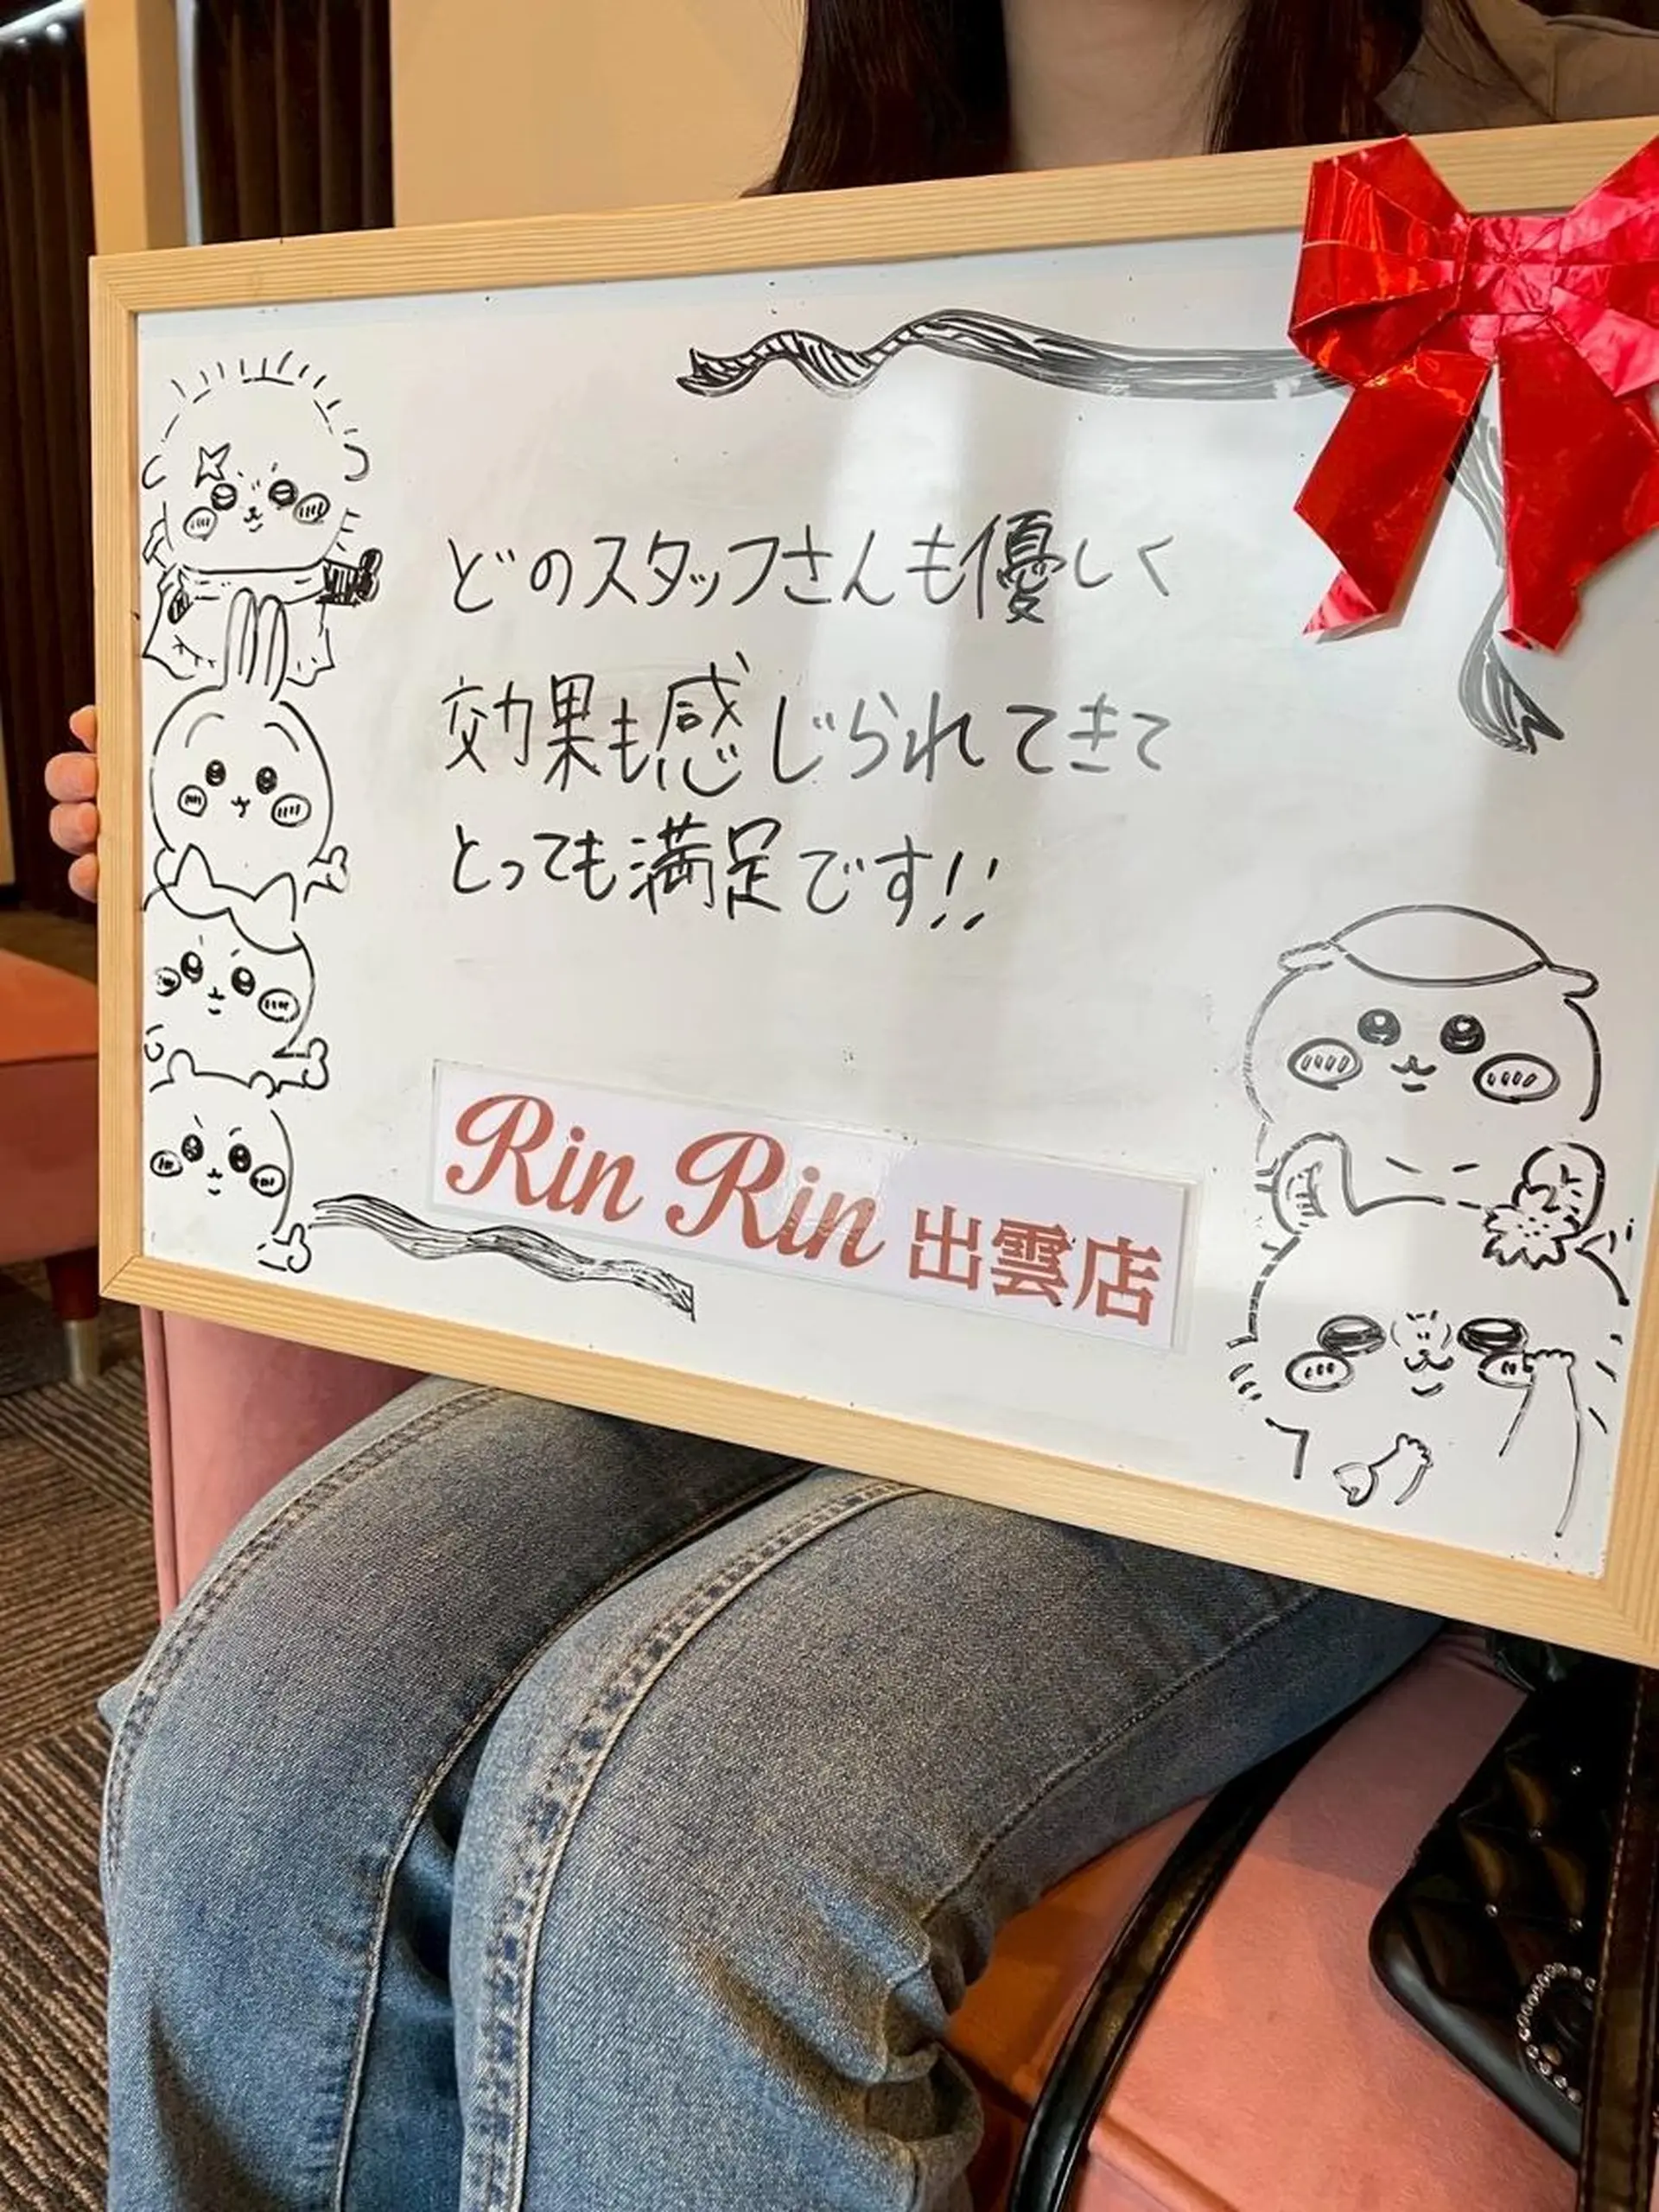 どのスタッフさんも優しく
効果も感じられてきて
とっても満足です!!
Rin Rin 出雲店